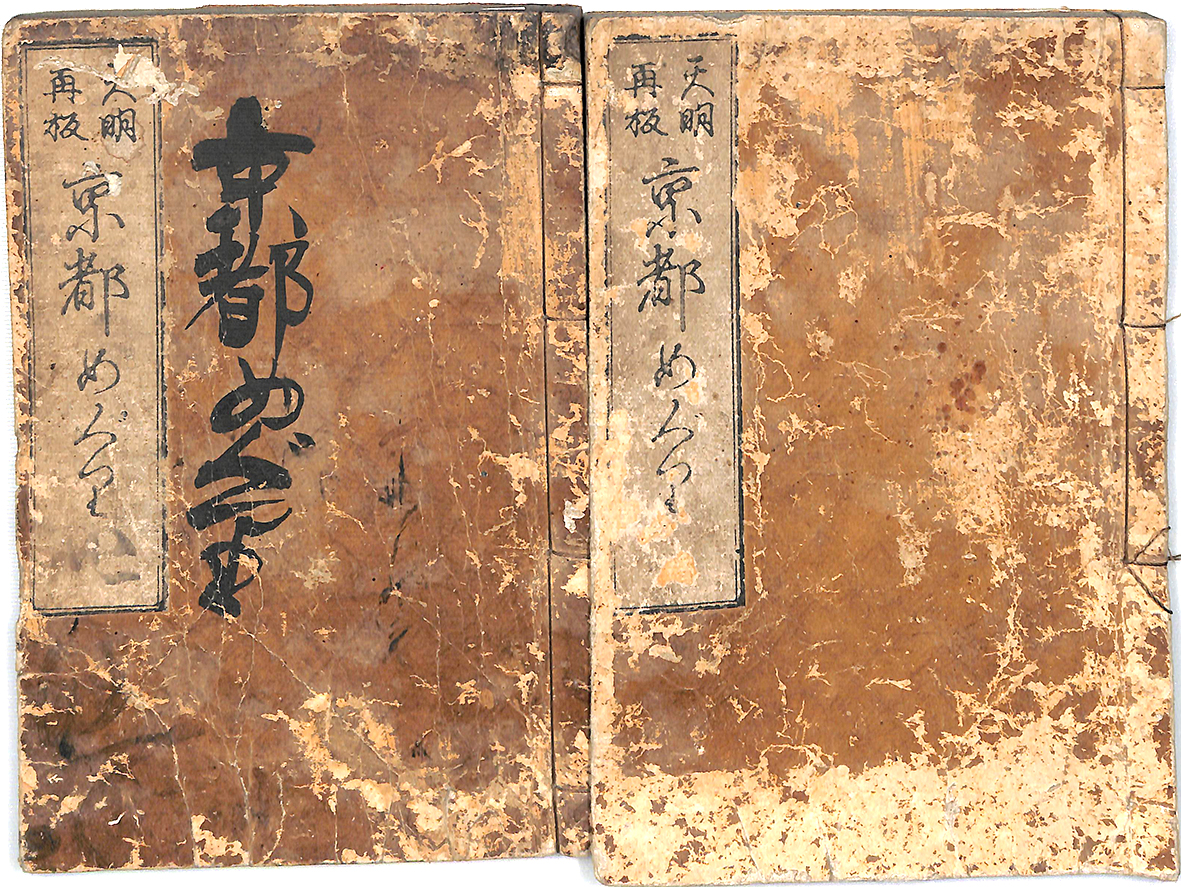 天明
再板
京都めぐり
京都めぐり
天明
再板
京都めぐり